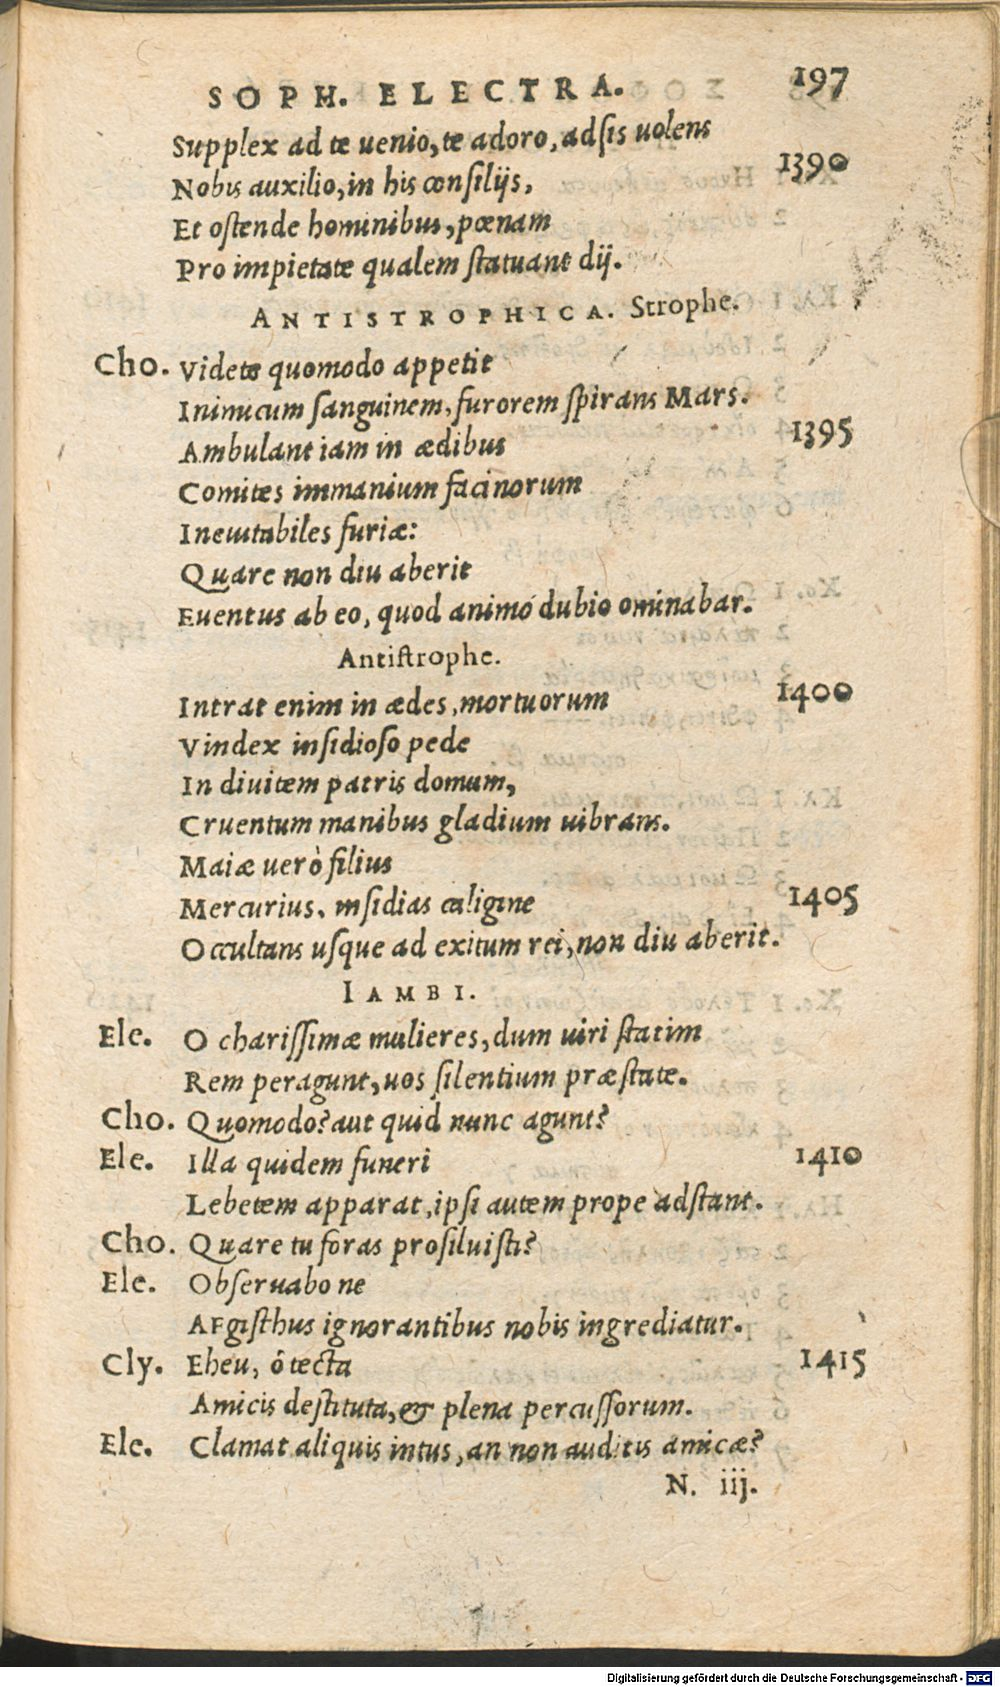 SOPH. ELECTRA. 197
Supplex ad te uenio, te adoro, adsis uolens
Nobis auxilio, in his consilijs, 1390
Et ostende hominibus, pœnam
Pro impietate qualem statuant dij.
ANTISTROPHICA. Strophe.
Cho. Videte quomodo appetit
Inimicum sanguinem, furorem spirans Mars.
Ambulant iam in ædibus 1395
Comites immanium facinorum
Ineuitabiles furiæ:
Quare non diu aberit
Euentus ab eo, quod animo dubio ominabar.
Antistrophe.
Intrat enim in ædes, mortuorum 1400
Vindex insidioso pede
In diuitem patris domum,
Cruentum manibus gladium uibrans.
Maiæ uerò filius
Mercurius, insidias caligine 1405
Occultans usque ad exitum rei, non diu aberit.
IAMBI.
Ele. O charissimæ mulieres, dum uiri statim
Rem peragunt, uos silentium præstate.
Cho. Quomodo? aut quid nunc agunt?
Ele. Illa quidem funeri 1410
Lebetem apparat, ipsi autem prope adstant.
Cho. Quare tu foras prosiluisti?
Ele. Obseruabo ne
AEgisthus ignorantibus nobis ingrediatur.
Cly. Eheu, ô tecta 1415
Amicis destituta, & plena percussorum.
Ele. Clamat aliquis intus, an non auditis amicæ?
N. iij.
Digitalisierung gefördert durch die Deutsche Forschungsgemeinschaft - DFG